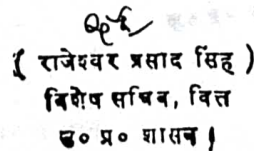 ( राजेश्वर प्रसाद सिंह )
विशेष सचिव, वित्त
उ० प्र० शासन।